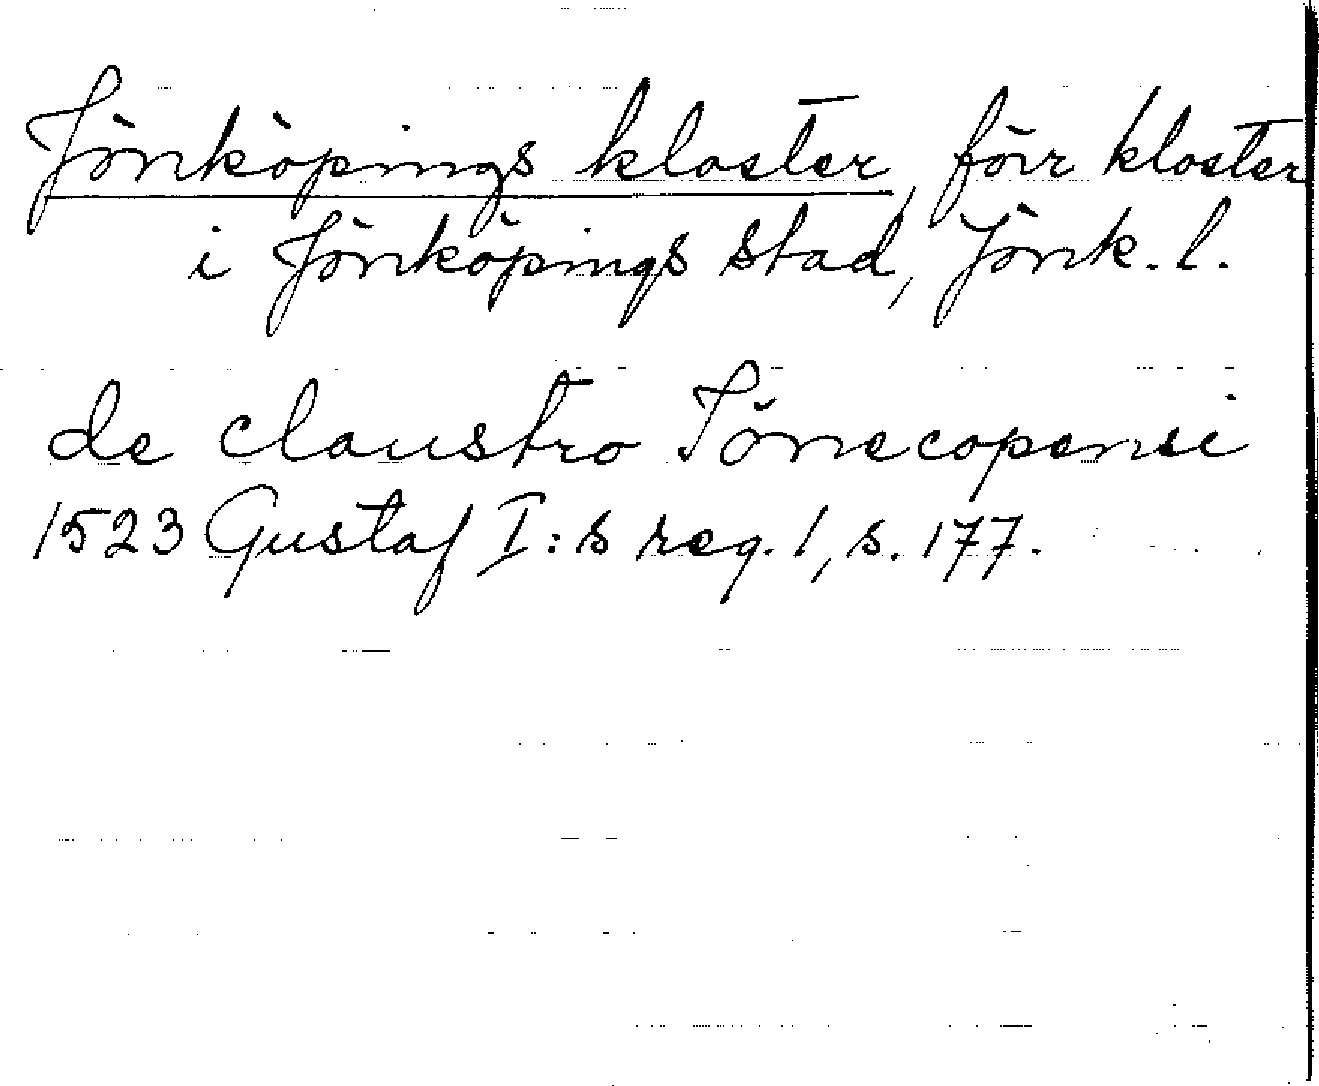 Jönköpings kloster, förr kloster
i Jönköpings stad, Jönk. l.
de claustro Jönecopensi
1523 Gustaf I:s reg. 1, s. 177.